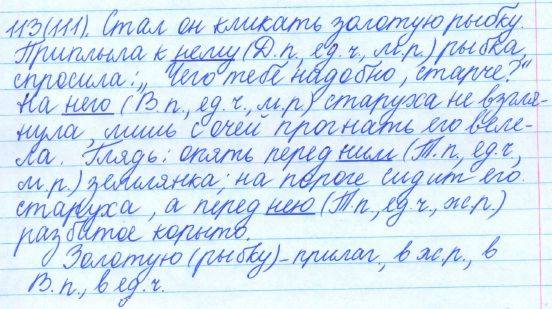 113(111). Стал он кликать золотую рыбку.
Приплыла к нему (Д.п., ед.ч., м.р.) рыбка,
спросила: „Чего тебе надобно, старче?"
На него (В.п., ед.ч., м.р.) старуха не взгля-
нула, лишь с очей прогнать его веле-
ла. Глядь: опять перед ним (Т.п., ед.ч.,
м.р.) землянка; на пороге сидит его
старуха, а перед нею (Т.п., ед.ч., ж.р.)
разбитое корыто.
Золотую (рыбку) - прилаг., в ж.р., в
В.п., в ед.ч.